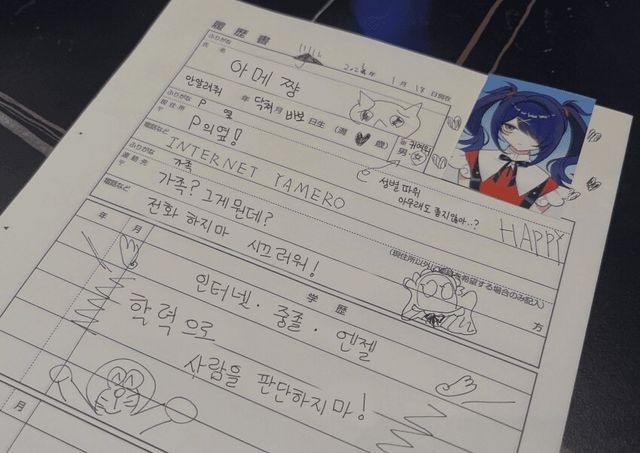 履歴書
2024年 1月 18日現在
ふりがな
氏名
아메 쨩
안알려줘 年 닥쳐 月 바보 日生 (満 歳) 男・女 귀여워
ふりがな P 옆
現住所 〒
P의옆!
電話など
INTERNET YAMERO HAPPY
성별 따위
아무래도 좋지않아..?
ふりがな 가족
連絡先 〒
가족? 그게뭔데?
(現住所以外に連絡を希望する場合のみ記入)
電話など
전화 하지마 시끄러워!
方
年 月
学歴
인터넷 · 중졸 · 엔젤
학력으로
사람을 판단하지마!
月